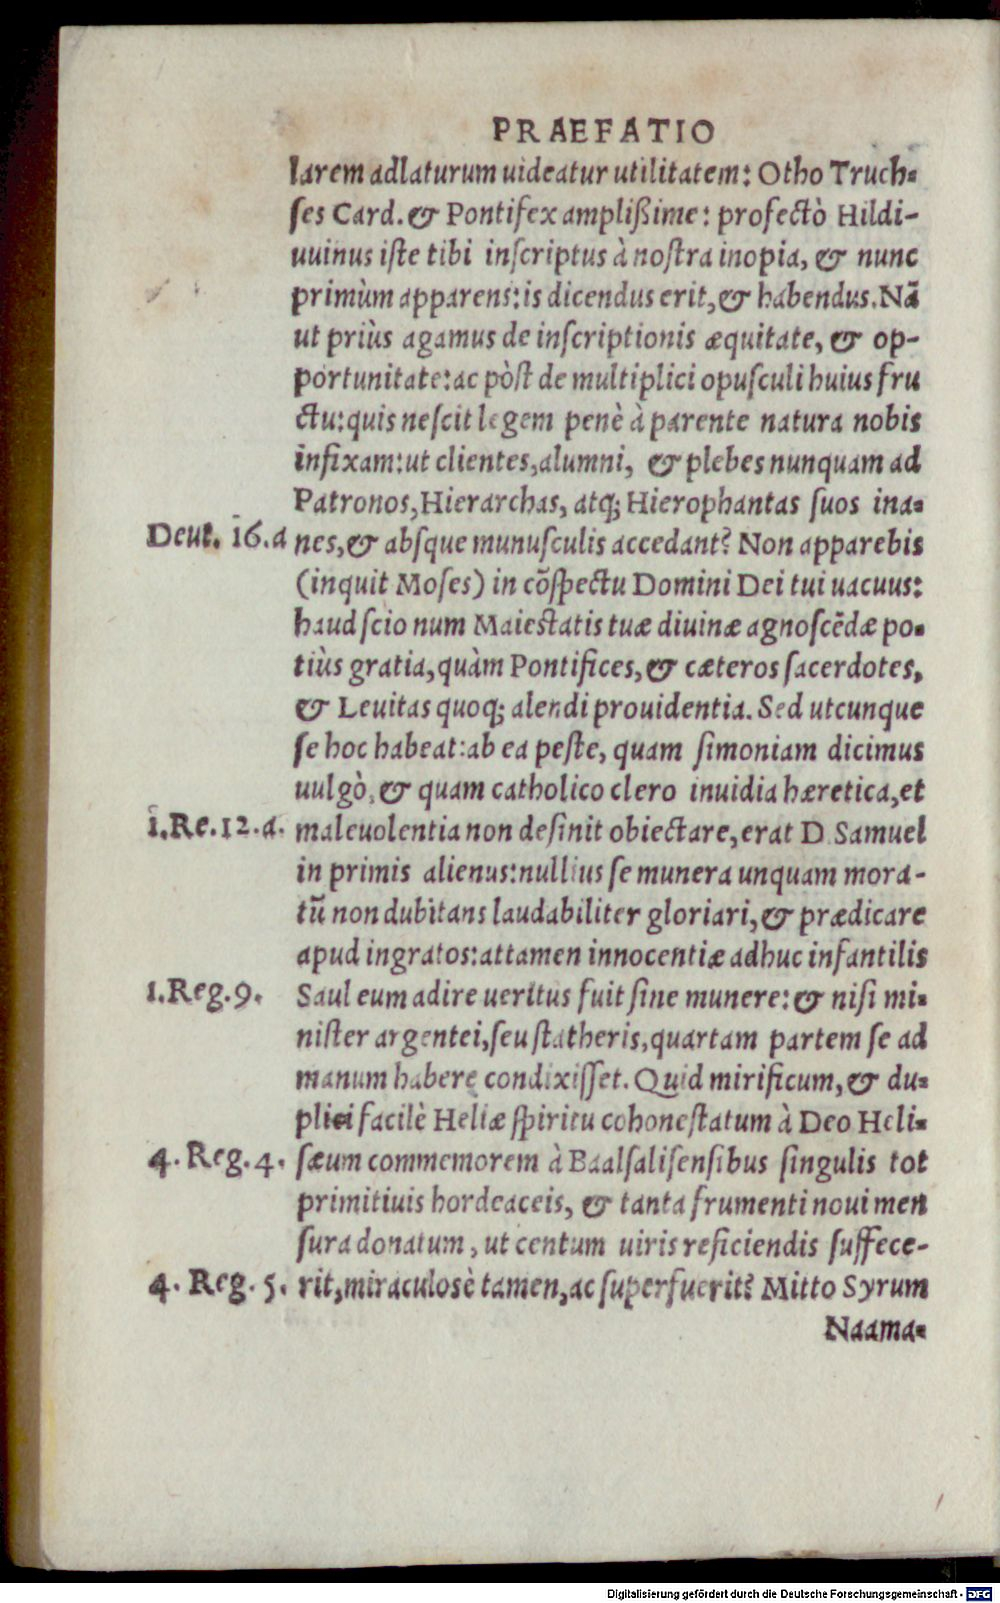 PRAEFATIO
larem adlaturum uideatur utilitatem: Otho Truch=
ſes Card. & Pontifex amplißime: profectò Hildi-
uuinus iſte tibi inſcriptus à noſtra inopia, & nunc
primùm apparens: is dicendus erit, & habendus. Nã
ut priùs agamus de inſcriptionis æquitate, & op-
portunitate: ac pòſt de multiplici opuſculi huius fru
ctu: quis neſcit legem penè à parente natura nobis
infixam: ut clientes, alumni, & plebes nunquam ad
Patronos, Hierarchas, atq; Hierophantas ſuos ina=
Deut. 16.a nes, & abſque munuſculis accedant? Non apparebis
(inquit Moſes) in cõſpectu Domini Dei tui uacuus:
haud ſcio num Maieſtatis tuæ diuinæ agnoſcẽdæ po=
tiùs gratia, quàm Pontifices, & cæteros ſacerdotes,
& Leuitas quoq; alendi prouidentia. Sed utcunque
ſe hoc habeat: ab ea peſte, quam ſimoniam dicimus
uulgò, & quam catholico clero inuidia hæretica, et
1.Re.12.a. maleuolentia non deſinit obiectare, erat D. Samuel
in primis alienus: nullius ſe munera unquam mora-
tũ non dubitans laudabiliter gloriari, & prædicare
apud ingratos: attamen innocentiæ adhuc infantilis
1.Reg.9. Saul eum adire ueritus fuit ſine munere: & niſi mi=
niſter argentei, ſeu ſtatheris, quartam partem ſe ad
manum habere condixiſſet. Quid mirificum, & du=
plici facilè Heliæ ſpiritu cohoneſtatum à Deo Heli=
4. Reg. 4. ſæum commemorem à Baalſaliſenſibus ſingulis tot
primitiuis hordeaceis, & tanta frumenti noui men
ſura donatum, ut centum uiris reficiendis ſuffece-
4. Reg. 5. rit, miraculosè tamen, ac ſuperfuerit? Mitto Syrum
Naama=
Digitalisierung gefördert durch die Deutsche Forschungsgemeinschaft - DFG